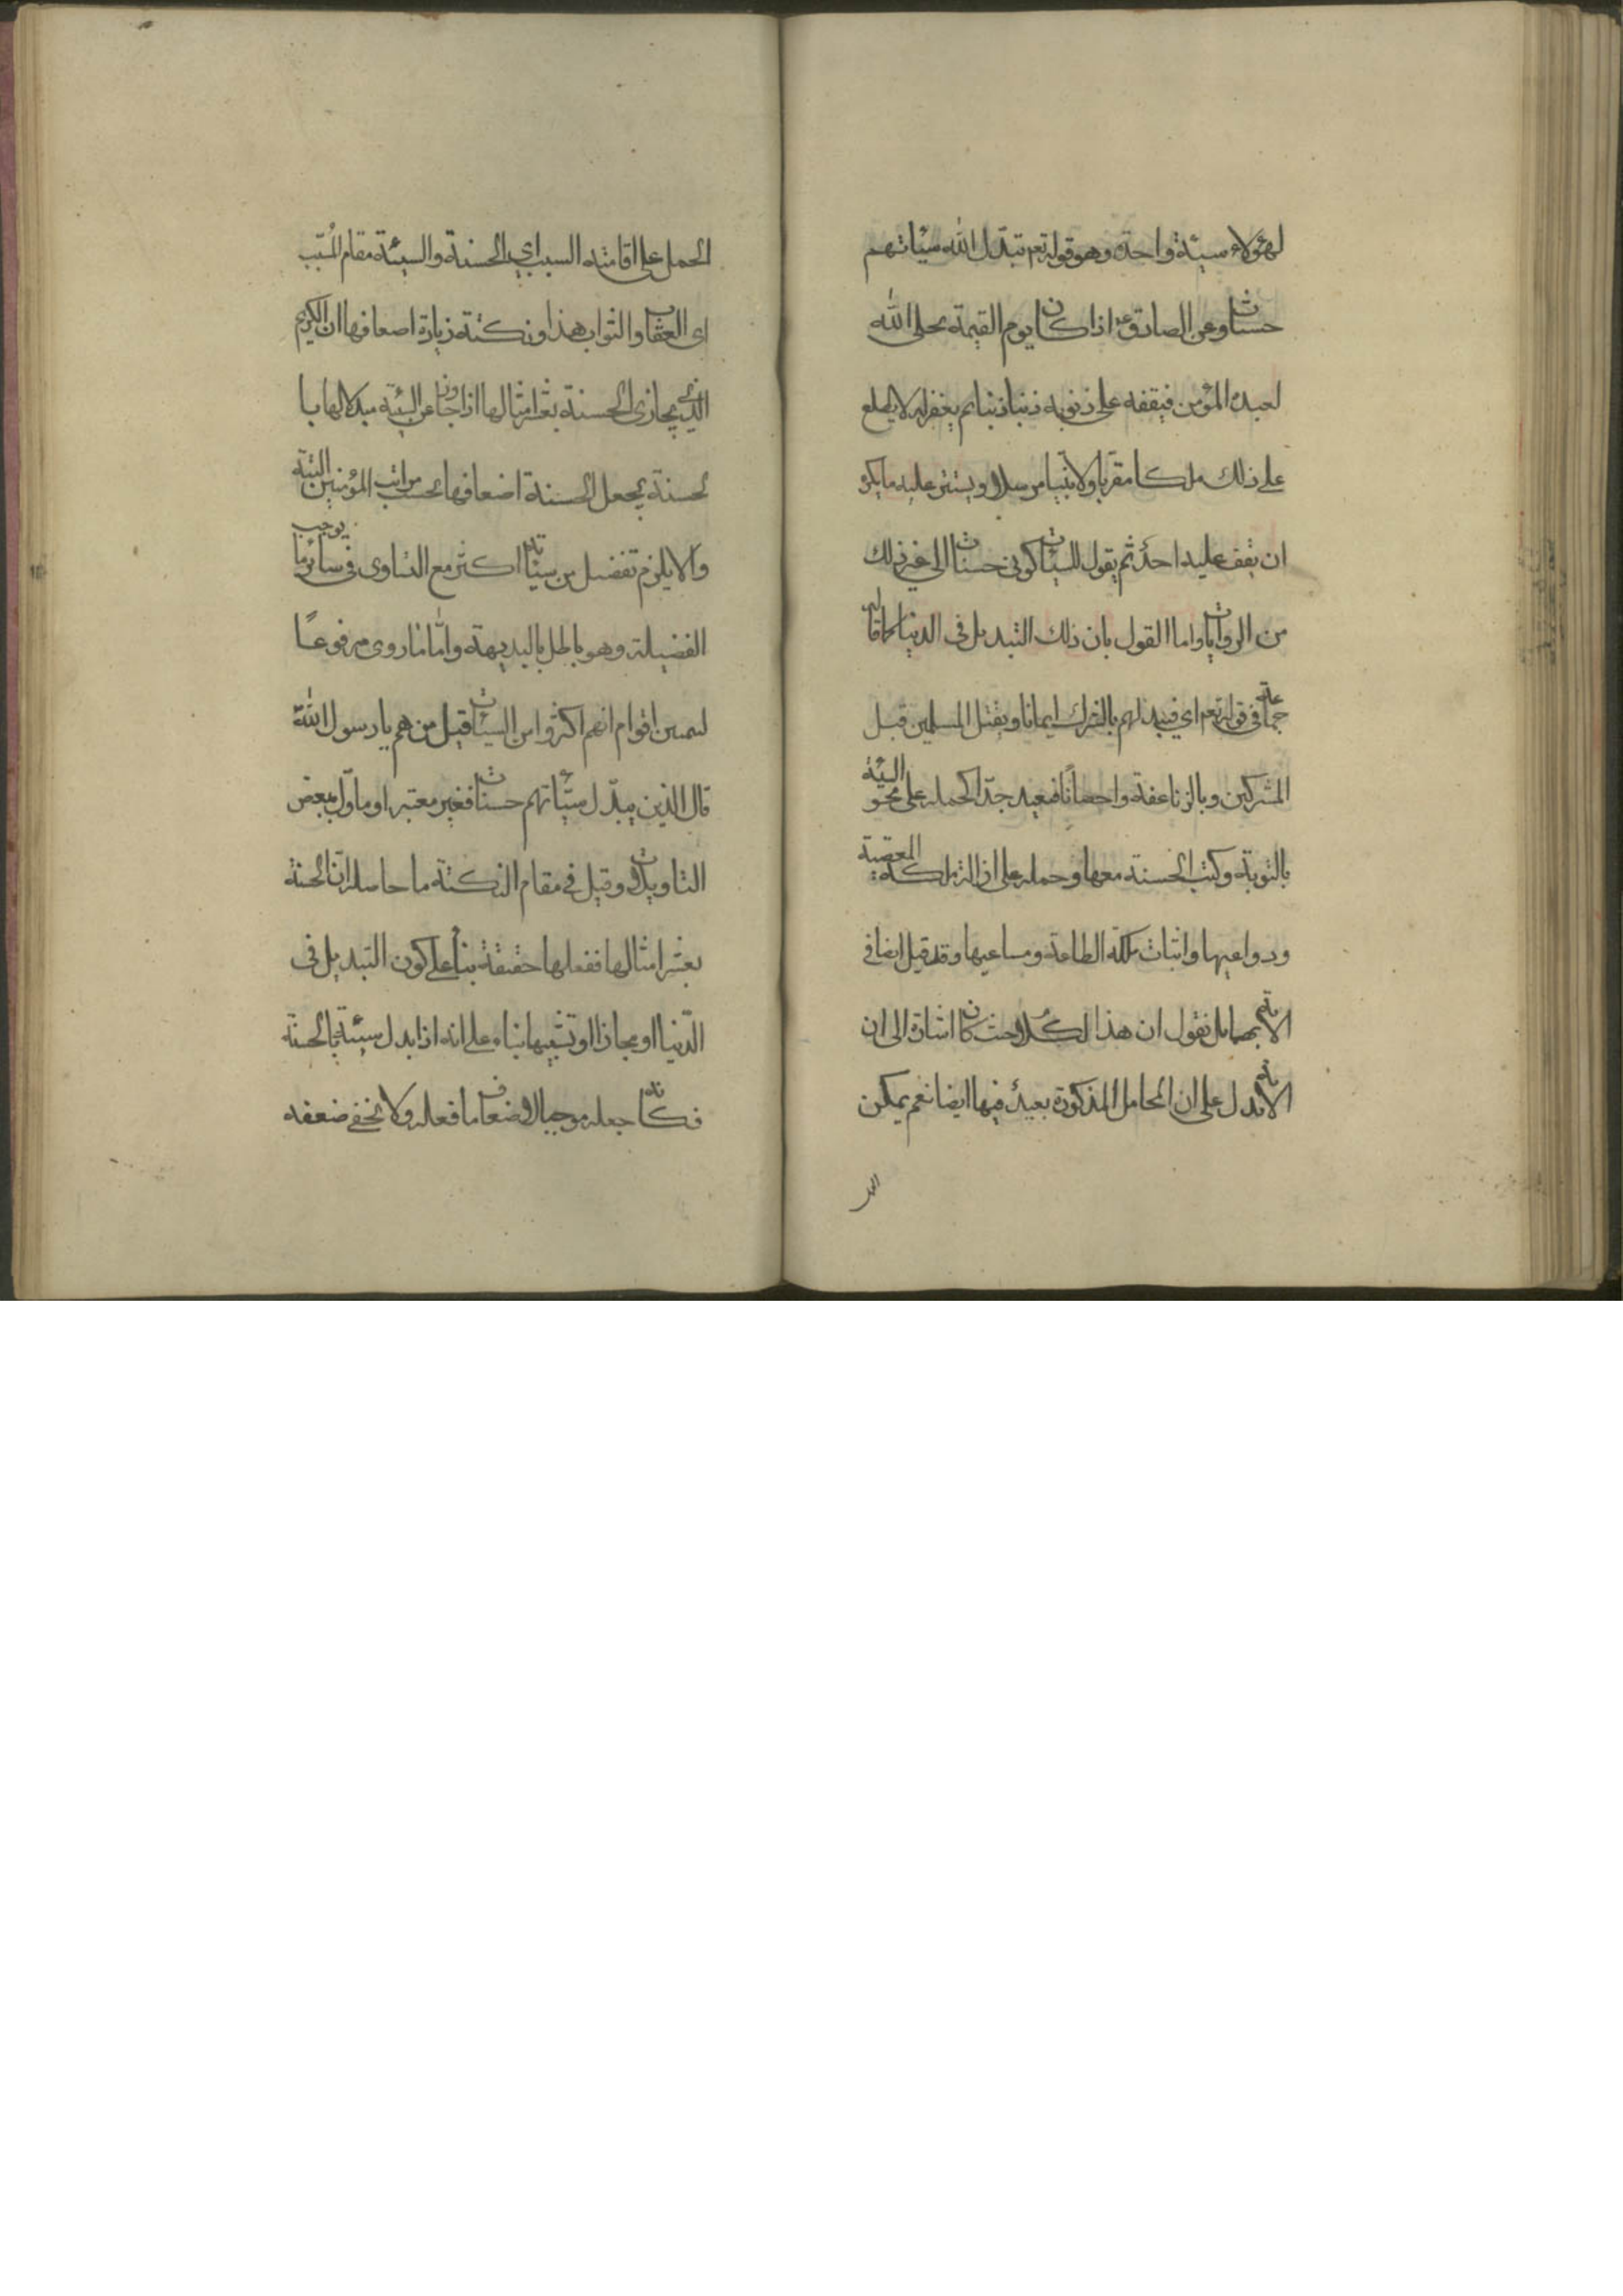 لهؤلاء سيئة واحدة وهو قوله تعم تبدّل الله سيّاتهم
حسنات وعن الصادق ع اذا كان يوم القيمة تجلى الله
لعبده المؤمن فيقفه على ذنوبه ذنبا ذنبا ثم يغفر له لا يطلع
على ذلك ملكا مقربا ولا نبيا مرسلا ويستر عليه ما يكره
ان يقف عليه احد ثم يقول للسيئات كونى حسنات الى غير ذلك
من الروايات واما القول بان ذلك التبديل فى الدنيا كما قاله
جماعة فى قوله تعم اي فيبدلهم بالشرك ايمانا وبقتل المسلمين قبل
المشركين وبالزنا عفة واحصانًا فبعيد جدّا كحمله على محو السيئة
بالتوبة وكتب الحسنة معها وحمله على ازالة ملكة المعصية
ودواعيها واثبات ملكة الطاعة ومساعيها وقد قيل ايضا فى
الآية بهما بل نقول ان هذا الكلام حيث كان اشارة الى ان
الآية تدل على ان المحامل المذكورة بعيد فيها ايضا نعم يمكن
الحمل
الحمل على اقامته السبب اي الحسنة والسيئة مقام المسبّب
اى العقاب والثواب هذا ونكتة زيادة اضعافها ان الكريم
الذي يجازى الحسنة بعشر امثالها اذا تجاوز عن السيئة مبدلا لها با
لحسنة يجعل الحسنة اضعافها بحسب مراتب المؤمنين البتة
والا يلزم تفضيل من سيئاته اكثر مع التساوى فى سائر ما يوجب
الفضيلة وهو باطل بالبديهة وامّا ما روى مرفوعًا
ليمنين اقوام انهم اكثروا من السيئات قيل من هم يا رسول الله
قال الذين يبدّل سيّئاتهم حسنات فغير معتبر او ماوّل ببعض
التاويلات وقيل فى مقام النكتة ما حاصله انّ الحسنة
بعشر امثالها ففعلها حقيقة بناء على كون التبديل فى
الدّنيا او مجازا او تشبيها بناء على انه اذا بدل سيئة بالحسنة
فكانه جعله موجبا لاضعاف ما فعله ولا يخفى ضعفه